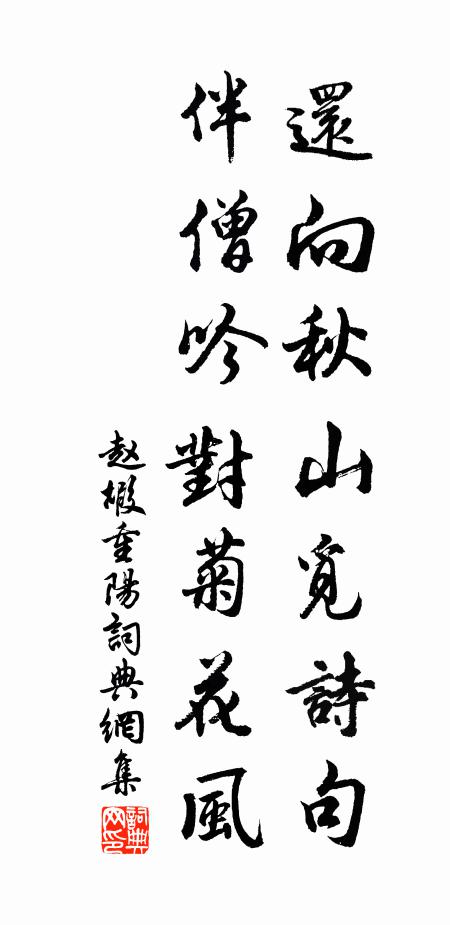 還向秋山覓詩句
伴僧吟對菊花風
赵嘏重陽詞典網集
詞典網印